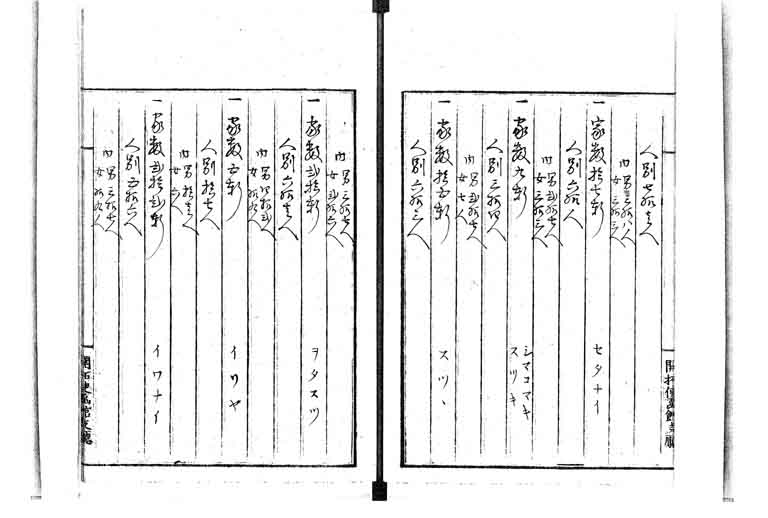 人別七拾壱人
内 男三拾八人
女三拾三人
一家数拾七軒 セタナイ
人別六拾人
内 男弐拾七人
女三拾三人
一家数九軒 シマコマキ
スツキ
人別三拾四人
内 男弐拾七人
女七人
一家数拾五軒 スツヽ
人別六拾三人
内 男三拾七人
女弐拾六人
一家数弐拾軒 ヲタスツ
人別六拾壱人
内 男四拾弐人
女拾九人
一家数五軒 イソヤ
人別拾七人
内 男拾壱人
女六人
一家数弐拾弐軒 イワナイ
人別五拾六人
内 男三拾七人
女拾九人
開拓使函館支廳
開拓使函館支廳